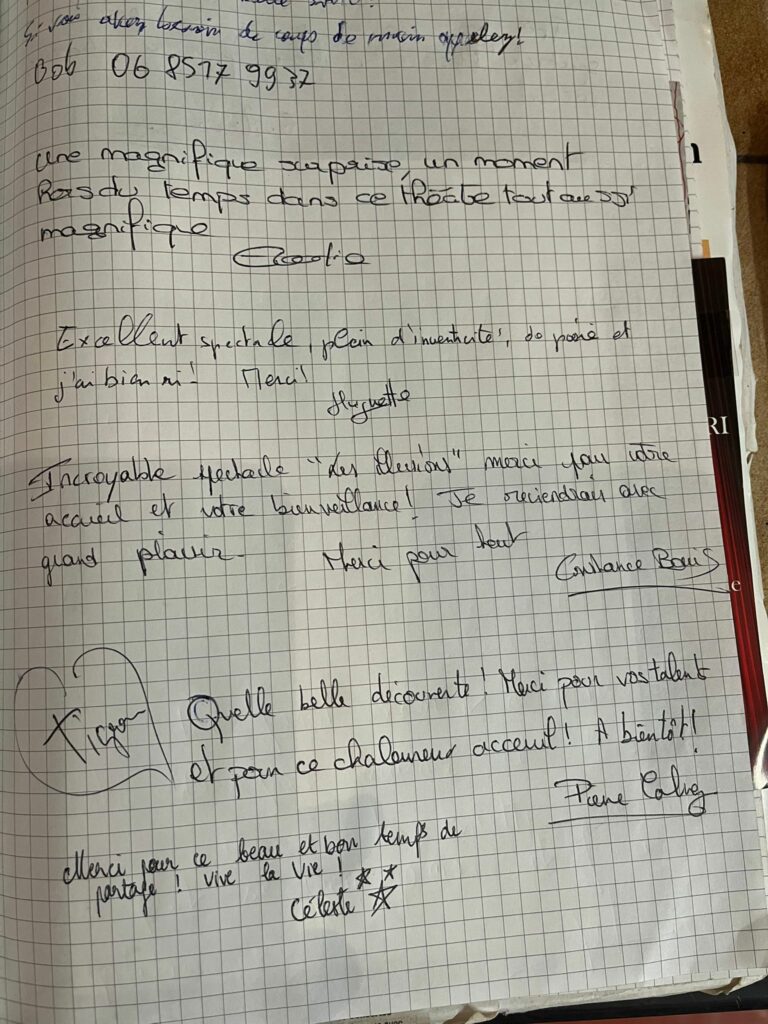 Si vous avez besoin de coups de main appelez!
Bob 06 8517 9937
une magnifique surprise, un moment
Hors du temps dans ce théâtre tout aussi
magnifique
Excellent spectacle, plein d'inventivité, de poésie et
j'ai bien ri! Merci!
Huguette
Incroyable spectacle "Les Illusions" merci pour votre
accueil et votre bienveillance! Je reviendrais avec
grand plaisir. Merci pour tout
Constance
RI
e
Quelle belle découverte! Merci pour vos talents
et pour ce chaleureux acceuil! A bientôt!
Pierre
Merci pour ce beau et bon temps de
partage! vive la vie!
Céleste